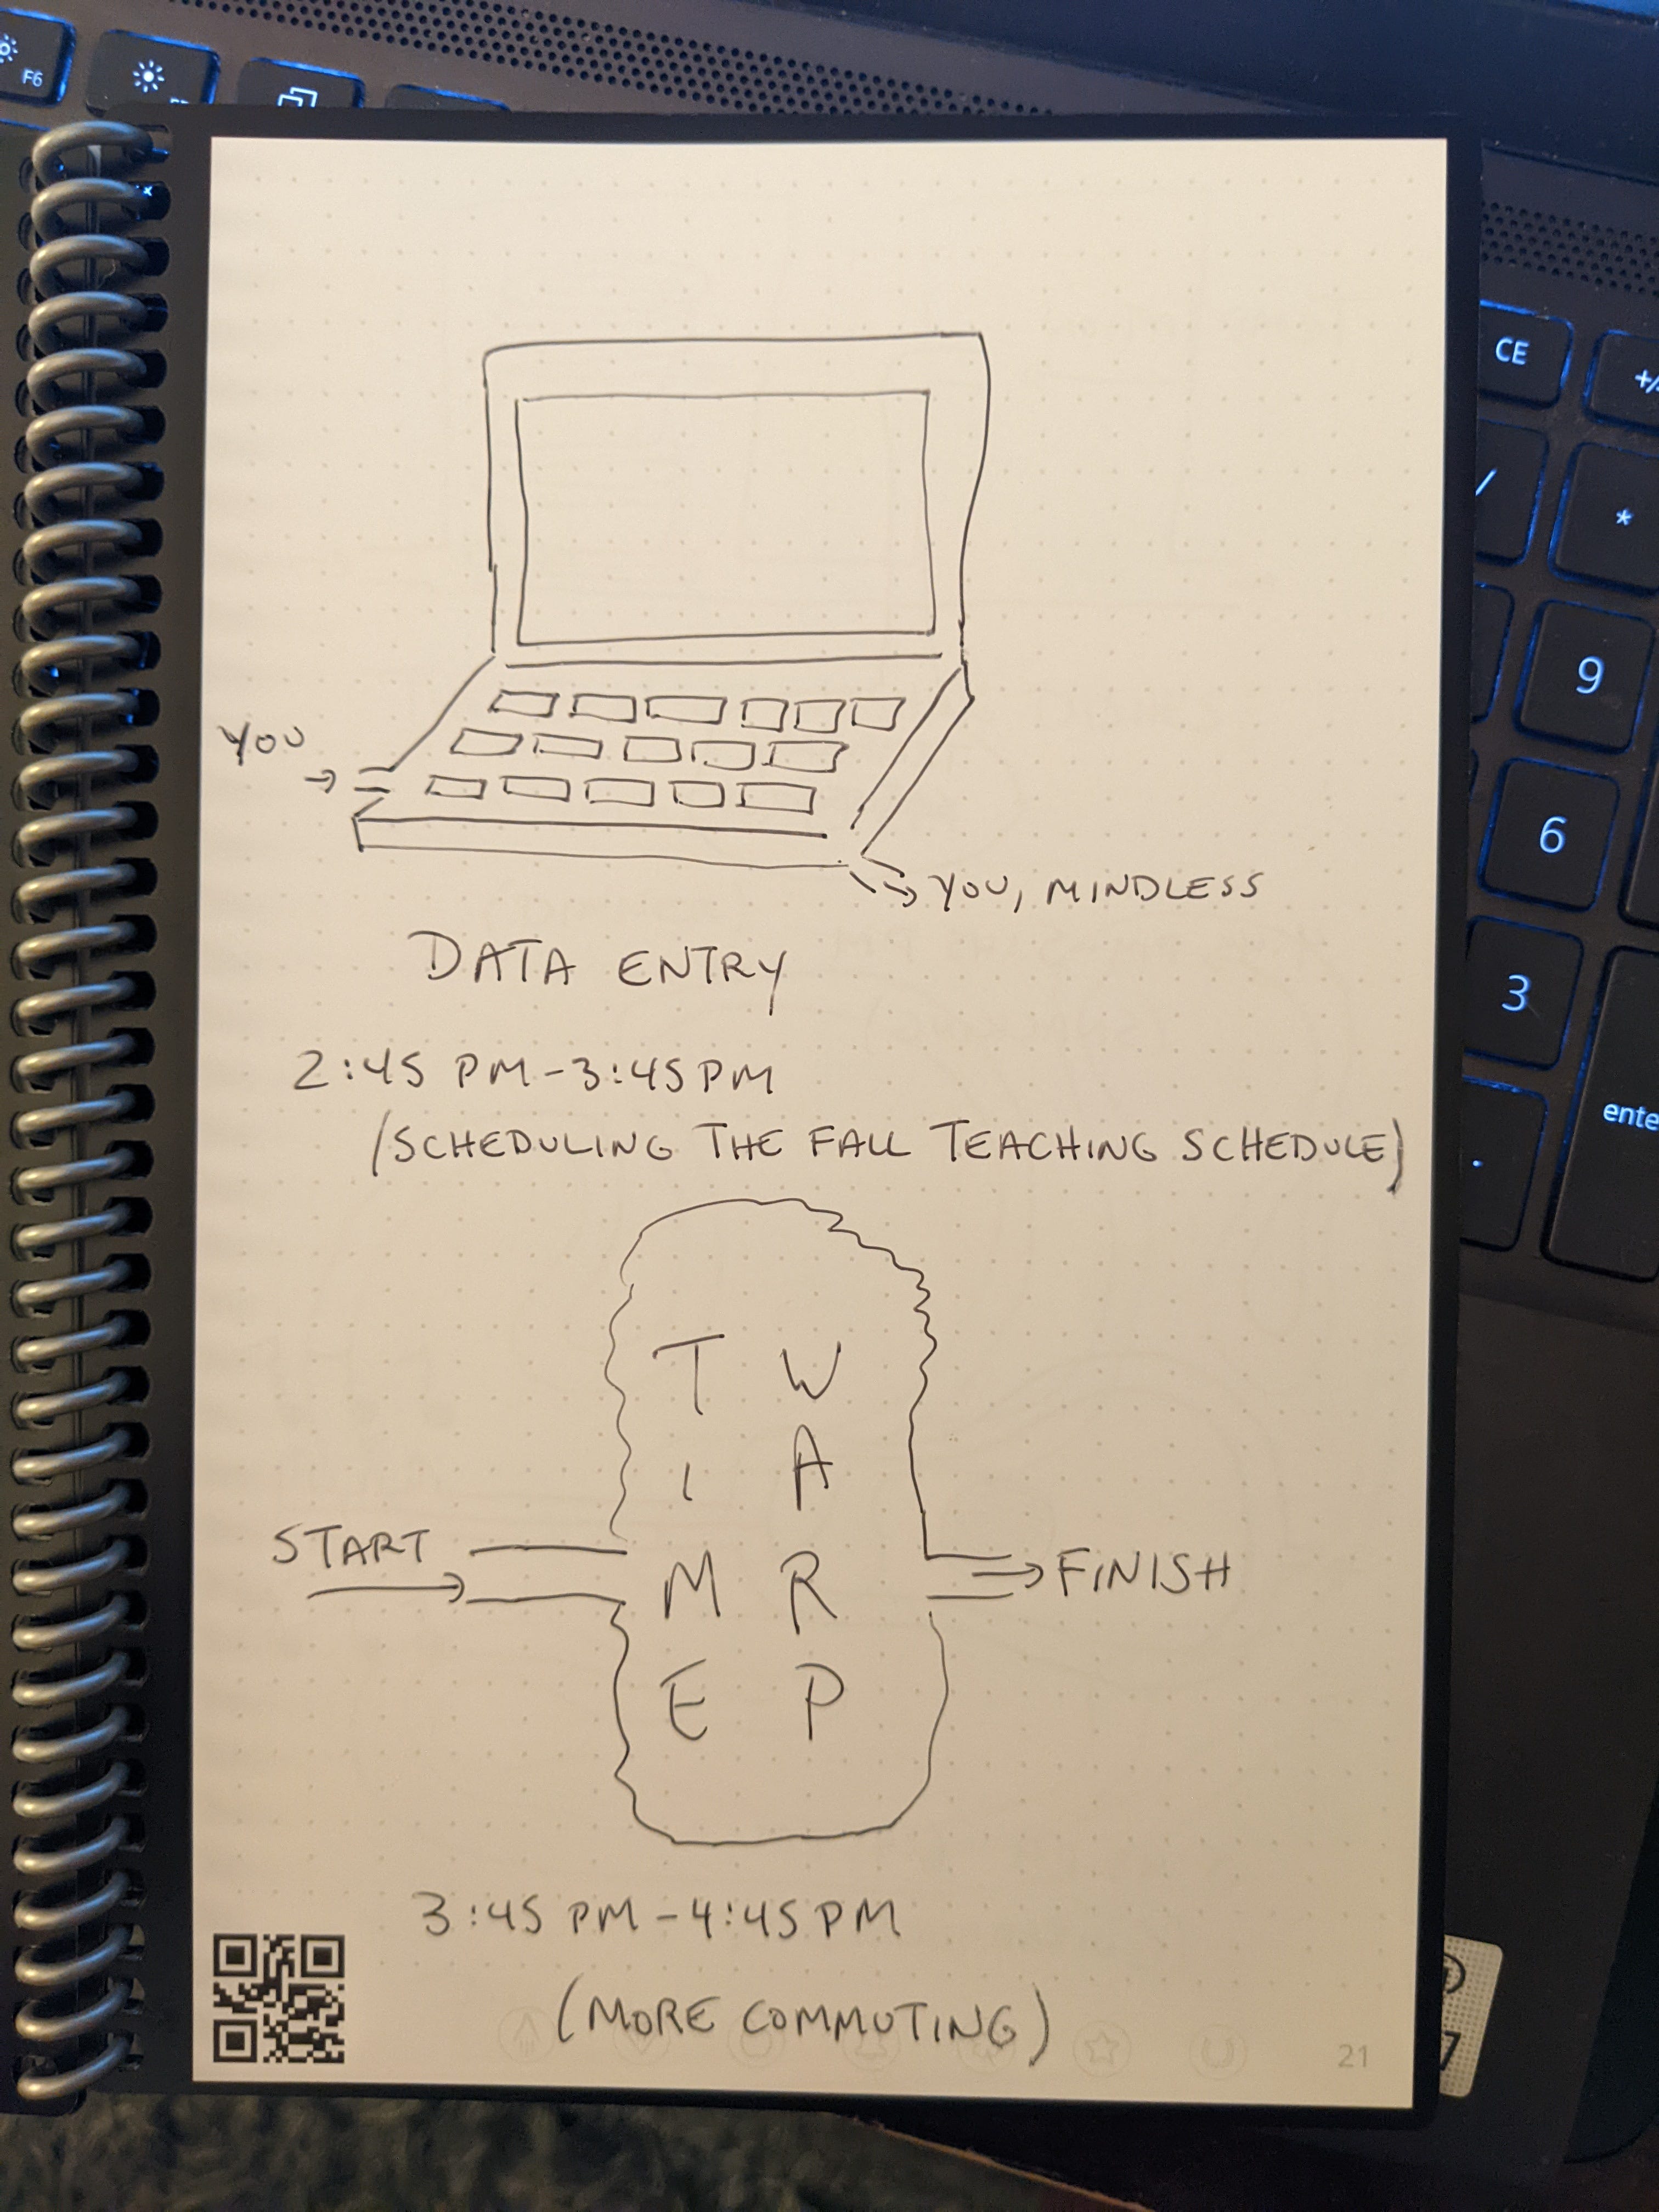 F6
CE
+/
/
*
9
6
3
ente
.
YOU
YOU, MINDLESS
DATA ENTRY
2:45 PM-3:45PM
(SCHEDULING THE FALL TEACHING SCHEDULE)
T W
I A
START
M R
FINISH
E P
3:45 PM-4:45PM
(MORE COMMUTING)
21
7